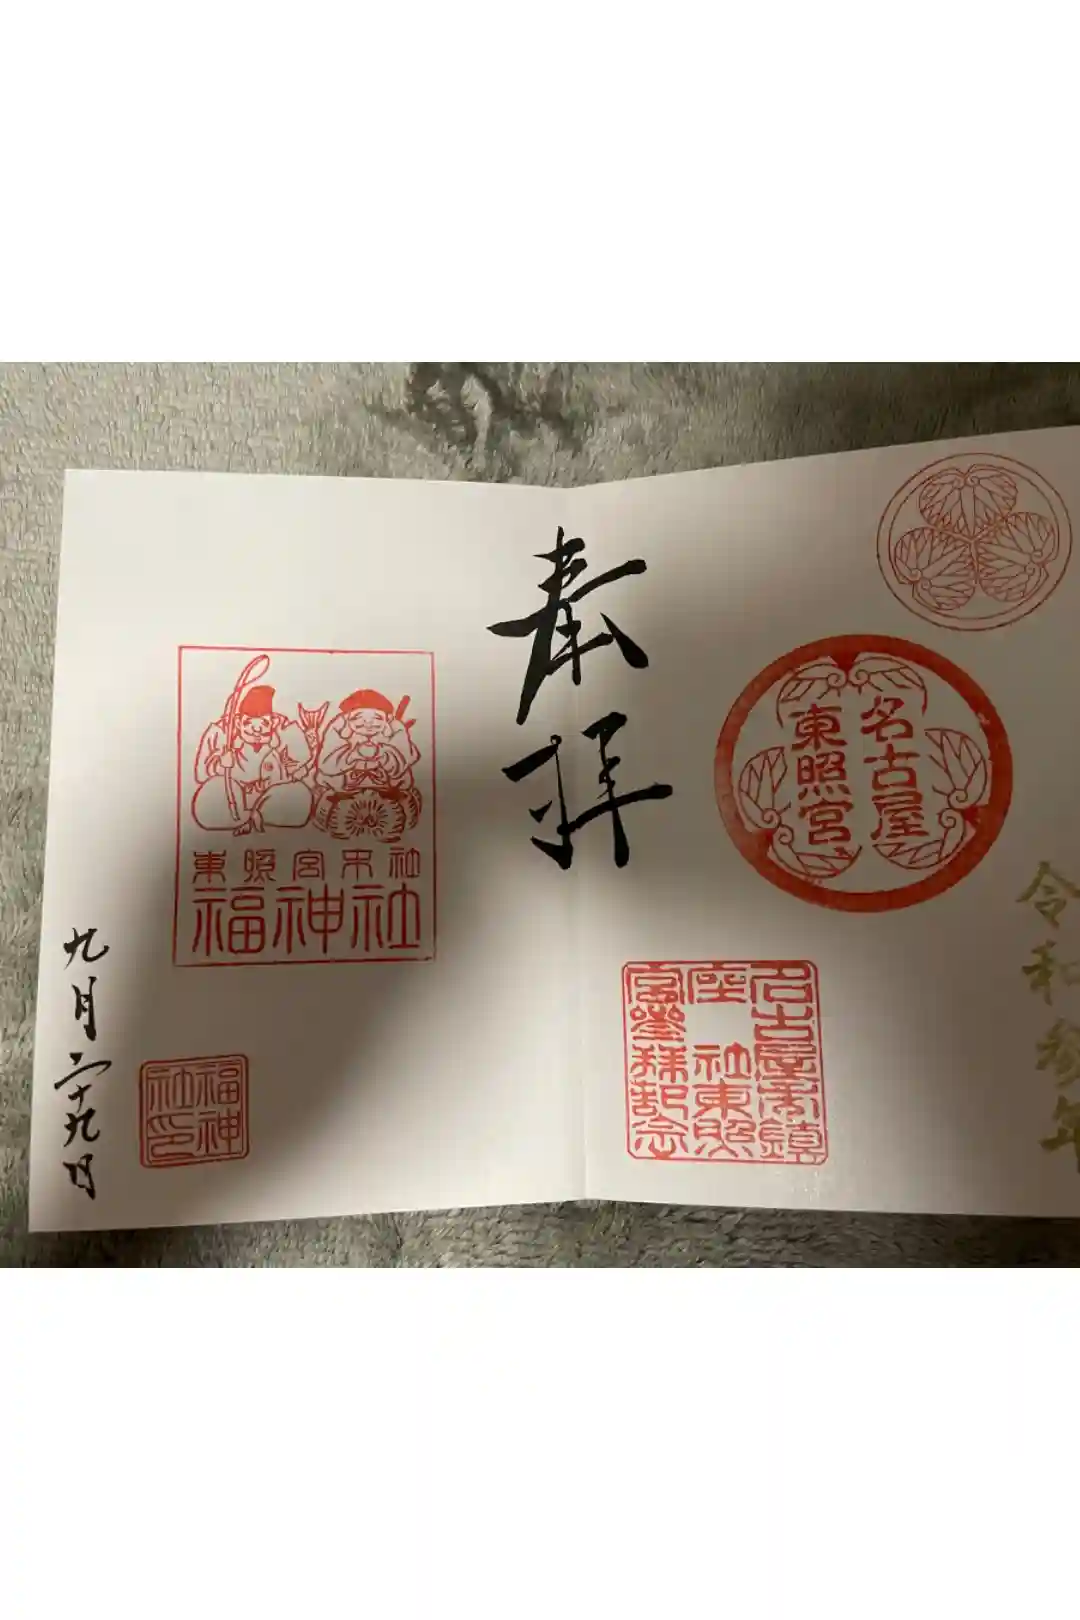 令和参年
名古屋
東照宮
名古屋東鎮
座 社東照
宮参拝記念
奉拝
東照宮末社
福神社
福神
社印
九月二十九日